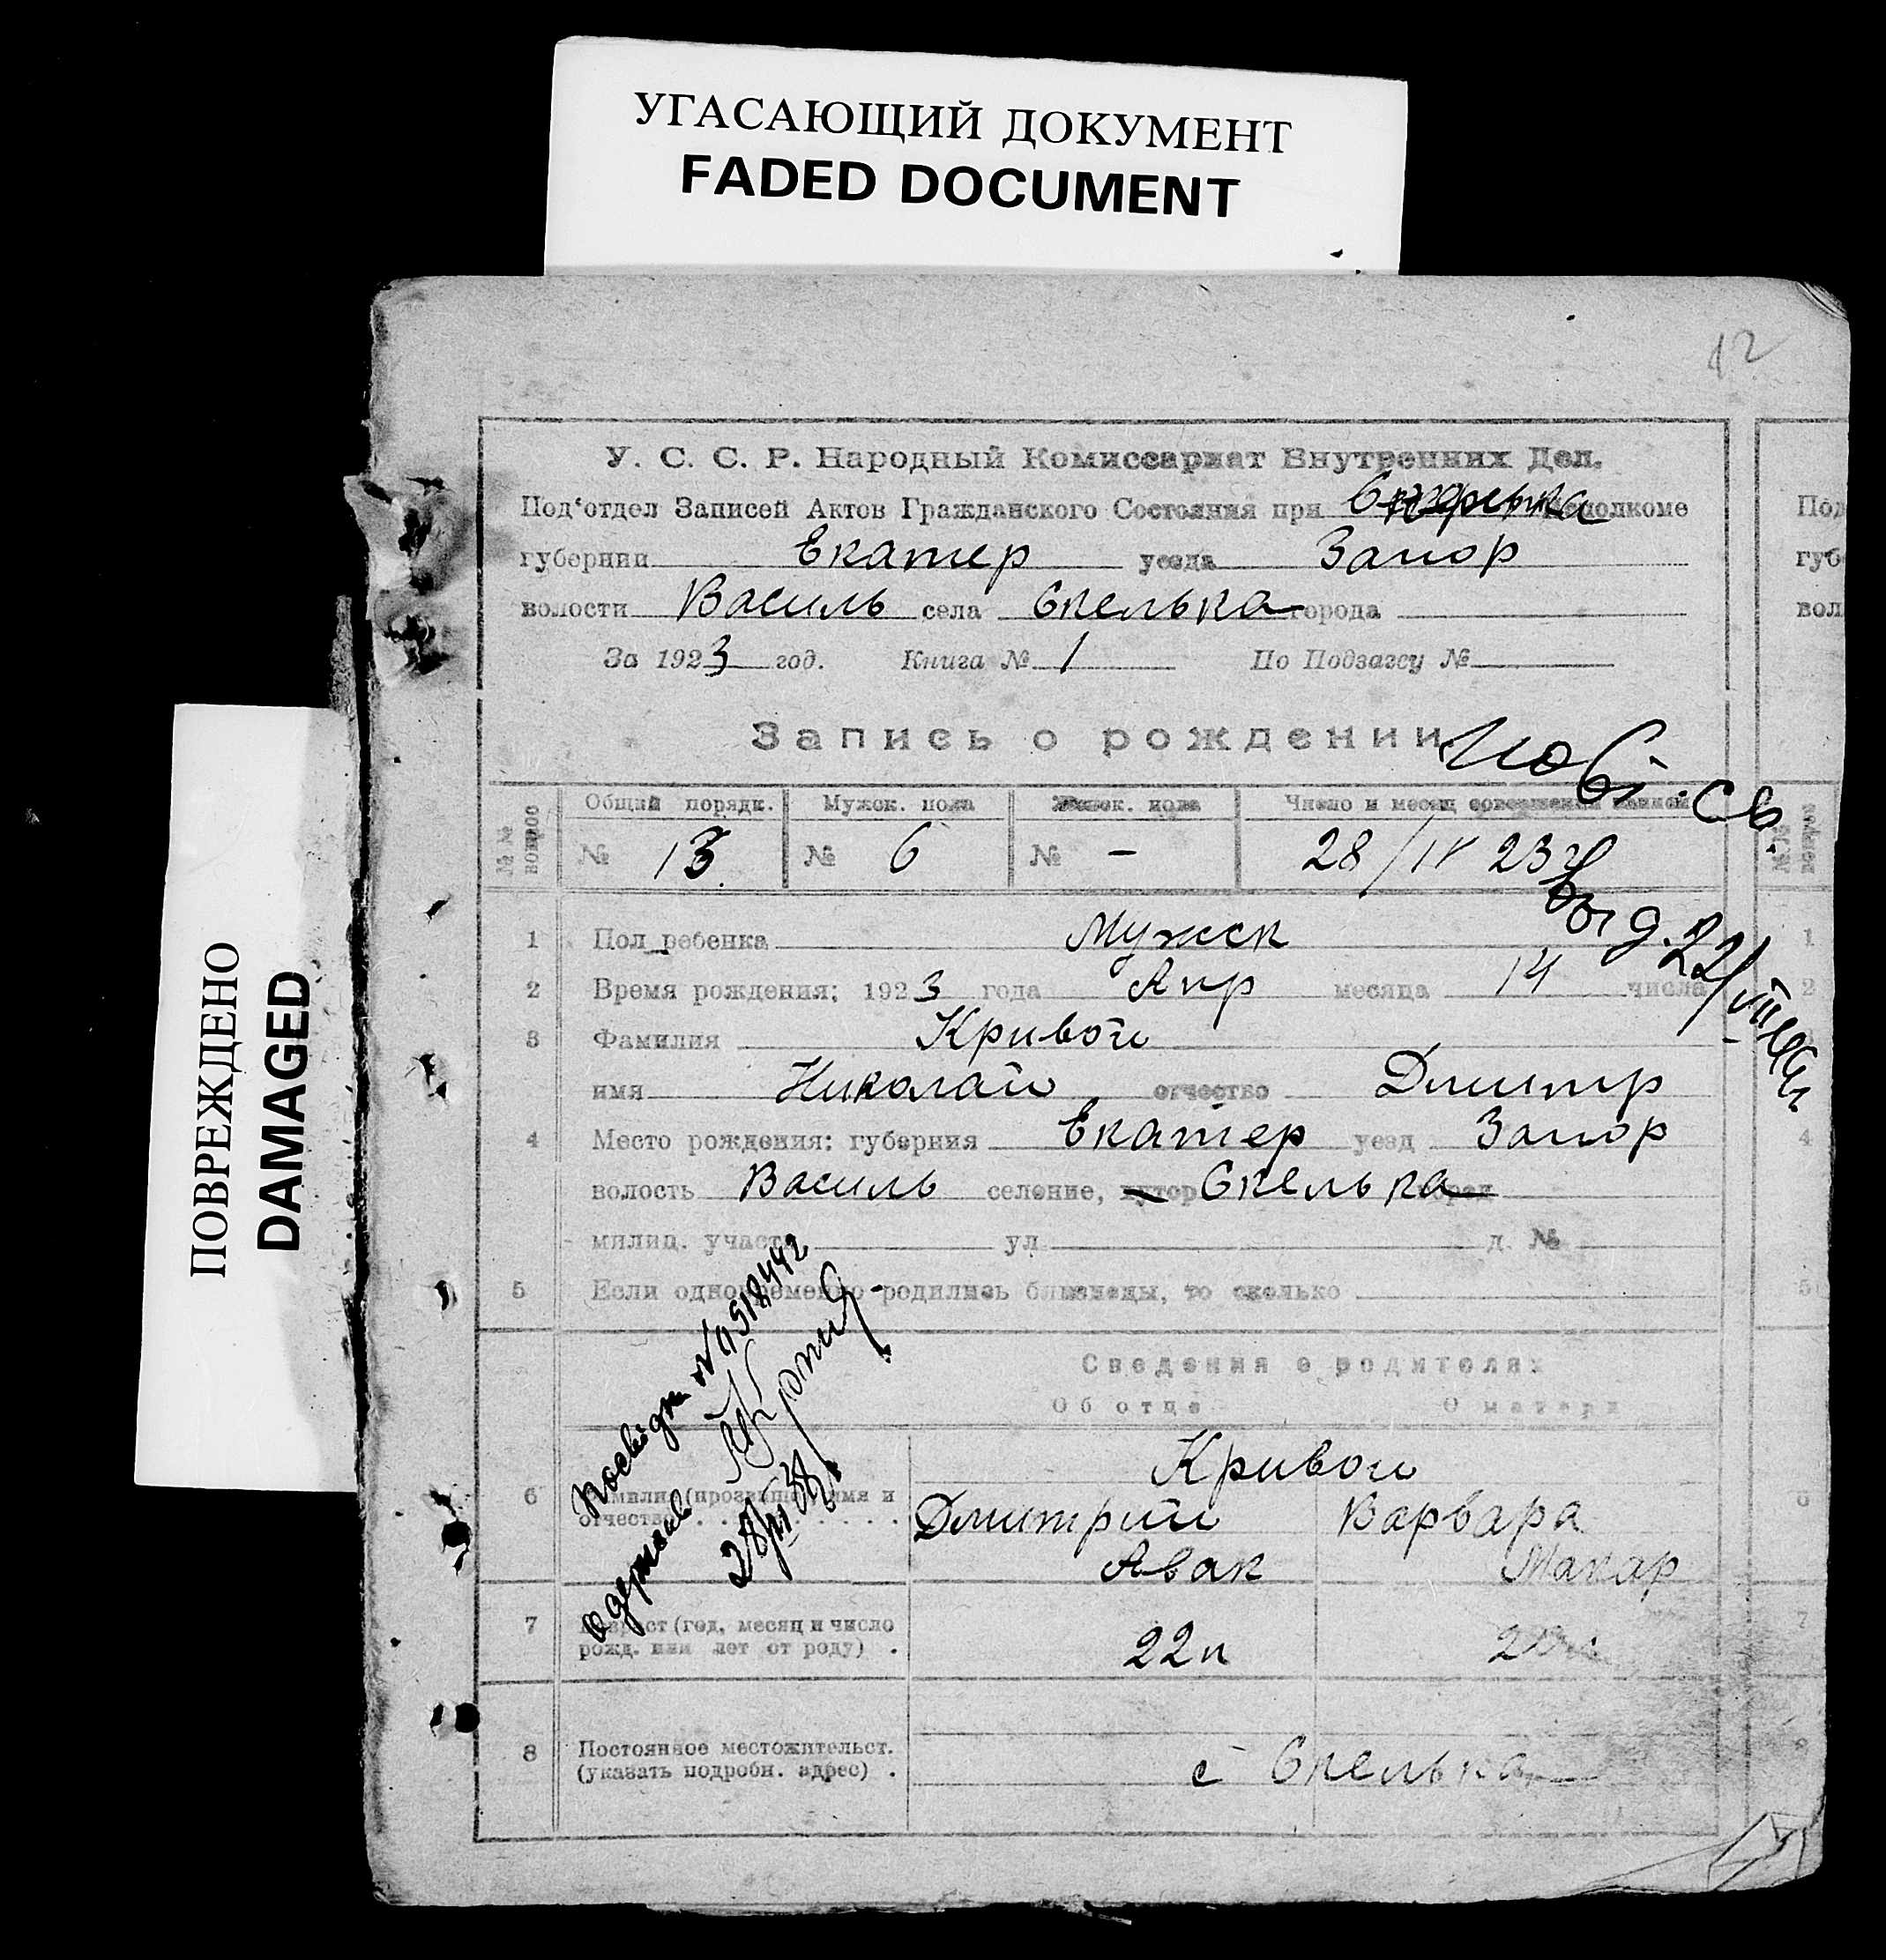 УГАСАЮЩИЙ ДОКУМЕНТ
FADED DOCUMENT
ПОВРЕЖДЕНО
DAMAGED
12
У. С. С. Р. Народный Комиссариат Внутренних Дел.
Под‘отдел Записей Актов Гражданского Состояния при исполкоме
губернии Екатер уезда Запор
волости Василь села Скелька города
За 1923 год. Книга № 1 По Подзагсу №
Запись о рождении
№№ вопрос Общий порядк. Мужск. пола Женск. пола Число и месяц совершения записи
№ 13. № 6 № – 28/IV 23
1 Пол ребенка Мужск
2 Время рождения: 1923 года Апр месяца 14 числа
3 Фамилия Кривой
имя Николай отчество Дмитр
4 Место рождения: губерния Екатер уезд Запор
волость Василь селение, хутор Скелька город
милиц. участ. ул. д. №
5 Если одновременно родились близнецы, то сколько
Сведения о родителях
Об отце О матери
Кривой
6 Фамилия (прозвище) имя и отчество Дмитрий Варвара
Авак Макар
7 Возраст (год, месяц и число рожд. или лет от роду) . 22л
8 Постоянное местожительст. (указать подробн. адрес) . с Скелька
Нові св.
Выд. 22/VII
одержав
Под
губ
вол
1
2
4
5
6
7